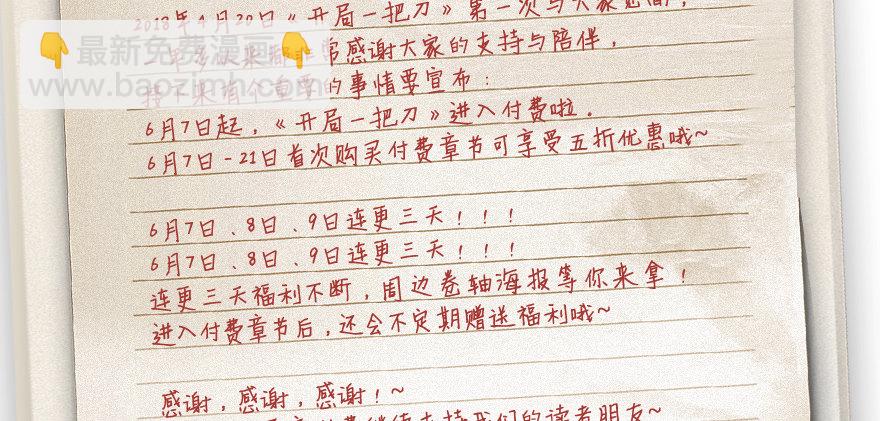 2018年4月20日《开局一把刀》第一次与大家见面，
最新免费漫画
感谢大家的支持与陪伴，
www.baozimh.com
的事情要宣布：
6月7日起，《开局一把刀》进入付费啦。
6月7日-21日首次购买付费章节可享受五折优惠哦~
6月7日、8日、9日连更三天！！！
6月7日、8日、9日连更三天！！！
连更三天福利不断，周边卷轴海报等你来拿！
进入付费章节后，还会不定期赠送福利哦~
感谢，感谢，感谢！~
继续支持我们的读者朋友~